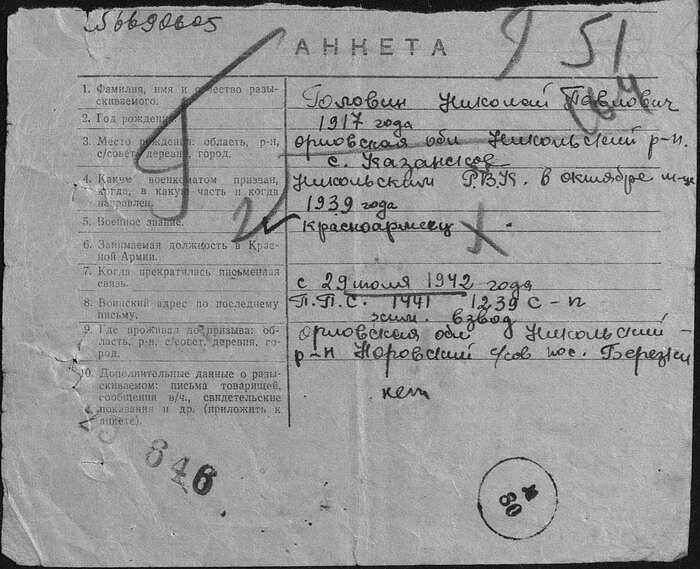 56690605
51
АНКЕТА
1. Фамилия, имя и отчество разы-
скиваемого.
Головин Николай Павлович
2. Год рождения.
1917 года
3. Место рождения: область, р-н,
с/совет, деревня, город.
орловская обл Никольский р-н.
с. Казанское
4. Каким военкоматом призван,
когда, в какую часть и когда
направлен.
Никольским Р.В.К. в октябре м-це
1939 года
5. Военное звание.
Красноармеец
6. Занимаемая должность в Крас-
ной Армии.
7. Когда прекратилась письменная
связь.
с 29 июля 1942 года
8. Воинский адрес по последнему
письму.
П.П.С. 1441 1239 С-п
хим. взвод
9. Где проживал до призыва: об-
ласть, р-н, с/совет, деревня, го-
род.
орловская обл Никольский
р-н Норовский с/сов пос. Березки
10. Дополнительные данные о разы-
скиваемом: письма товарищей,
сообщении в/ч., свидетельские
показания и др. (приложить к
анкете).
нет
646
80